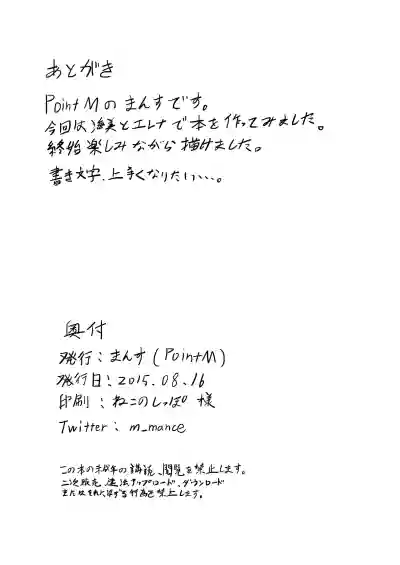 あとがき
PointMのまんすです。
今回は海美とエレナで本を作ってみました。
終始楽しみながら描けました。
書き文字、上手くなりたい…。
奥付
発行：まんす(PointM)
発行日：2015.08.16
印刷：ねこのしっぽ 様
Twitter：m_mance
この本の未成年の購読、閲覧を禁止します。
二次販売、違法アップロード、ダウンロード
行為を禁止します。